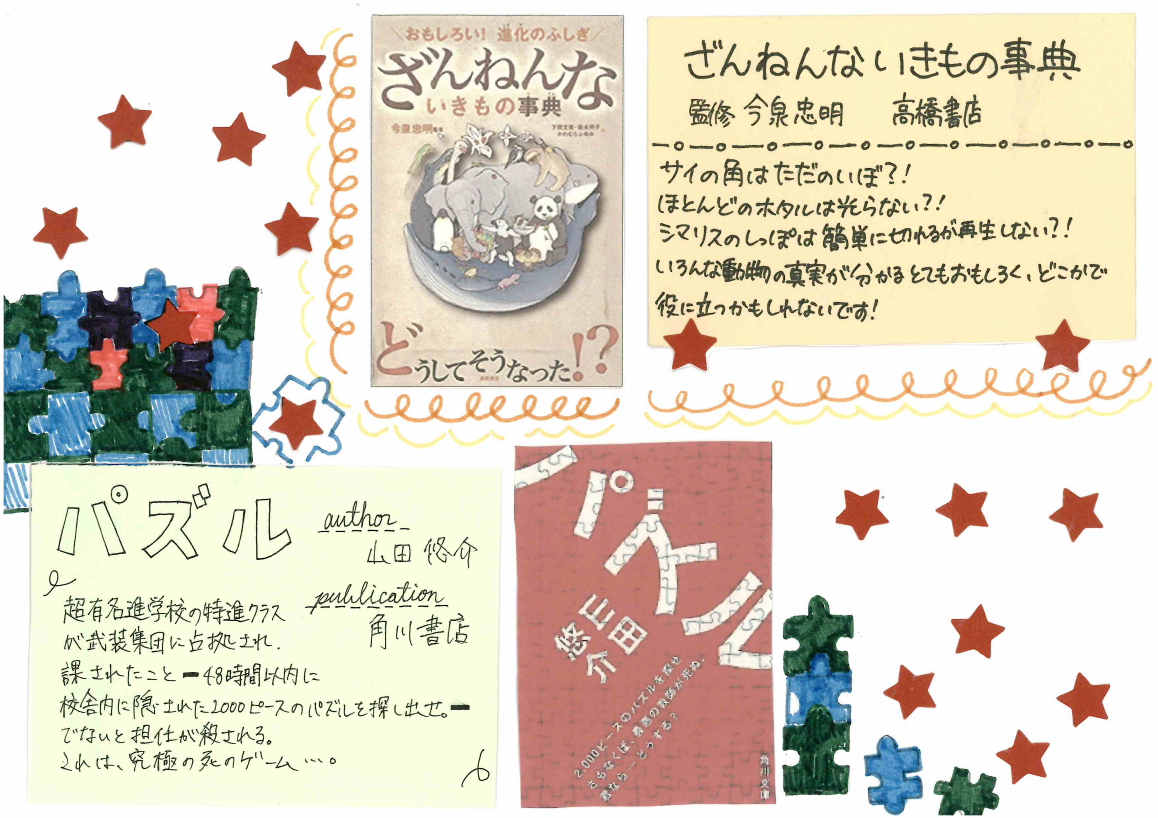 \おもしろい! 進化のふしぎ/
ざんねんな
いきもの事典
今泉忠明 監修
下間文恵・徳永明子
かわむらふゆみ
どうしてそうなった!?
高橋書店
ざんねんないきもの事典
監修 今泉忠明 高橋書店
サイの角はただのいぼ?!
ほとんどのホタルは光らない?!
シマリスのしっぽは簡単に切れるが再生しない?!
いろんな動物の真実が分かるとてもおもしろく、どこかで
役に立つかもしれないです!
パズル
author
山田 悠介
publication
角川書店
超有名進学校の特進クラス
が武装集団に占拠され、
課されたこと ー48時間以内に
校舎内に隠された2000ピースのパズルを探し出せ。ー
でないと担任が殺される。
これは、究極の死のゲーム…。
パズル
山田
悠介
2,000ピースのパズルを探せ
さもなくば、最悪の教師が死ぬ。
君なら─どうする?
角川文庫